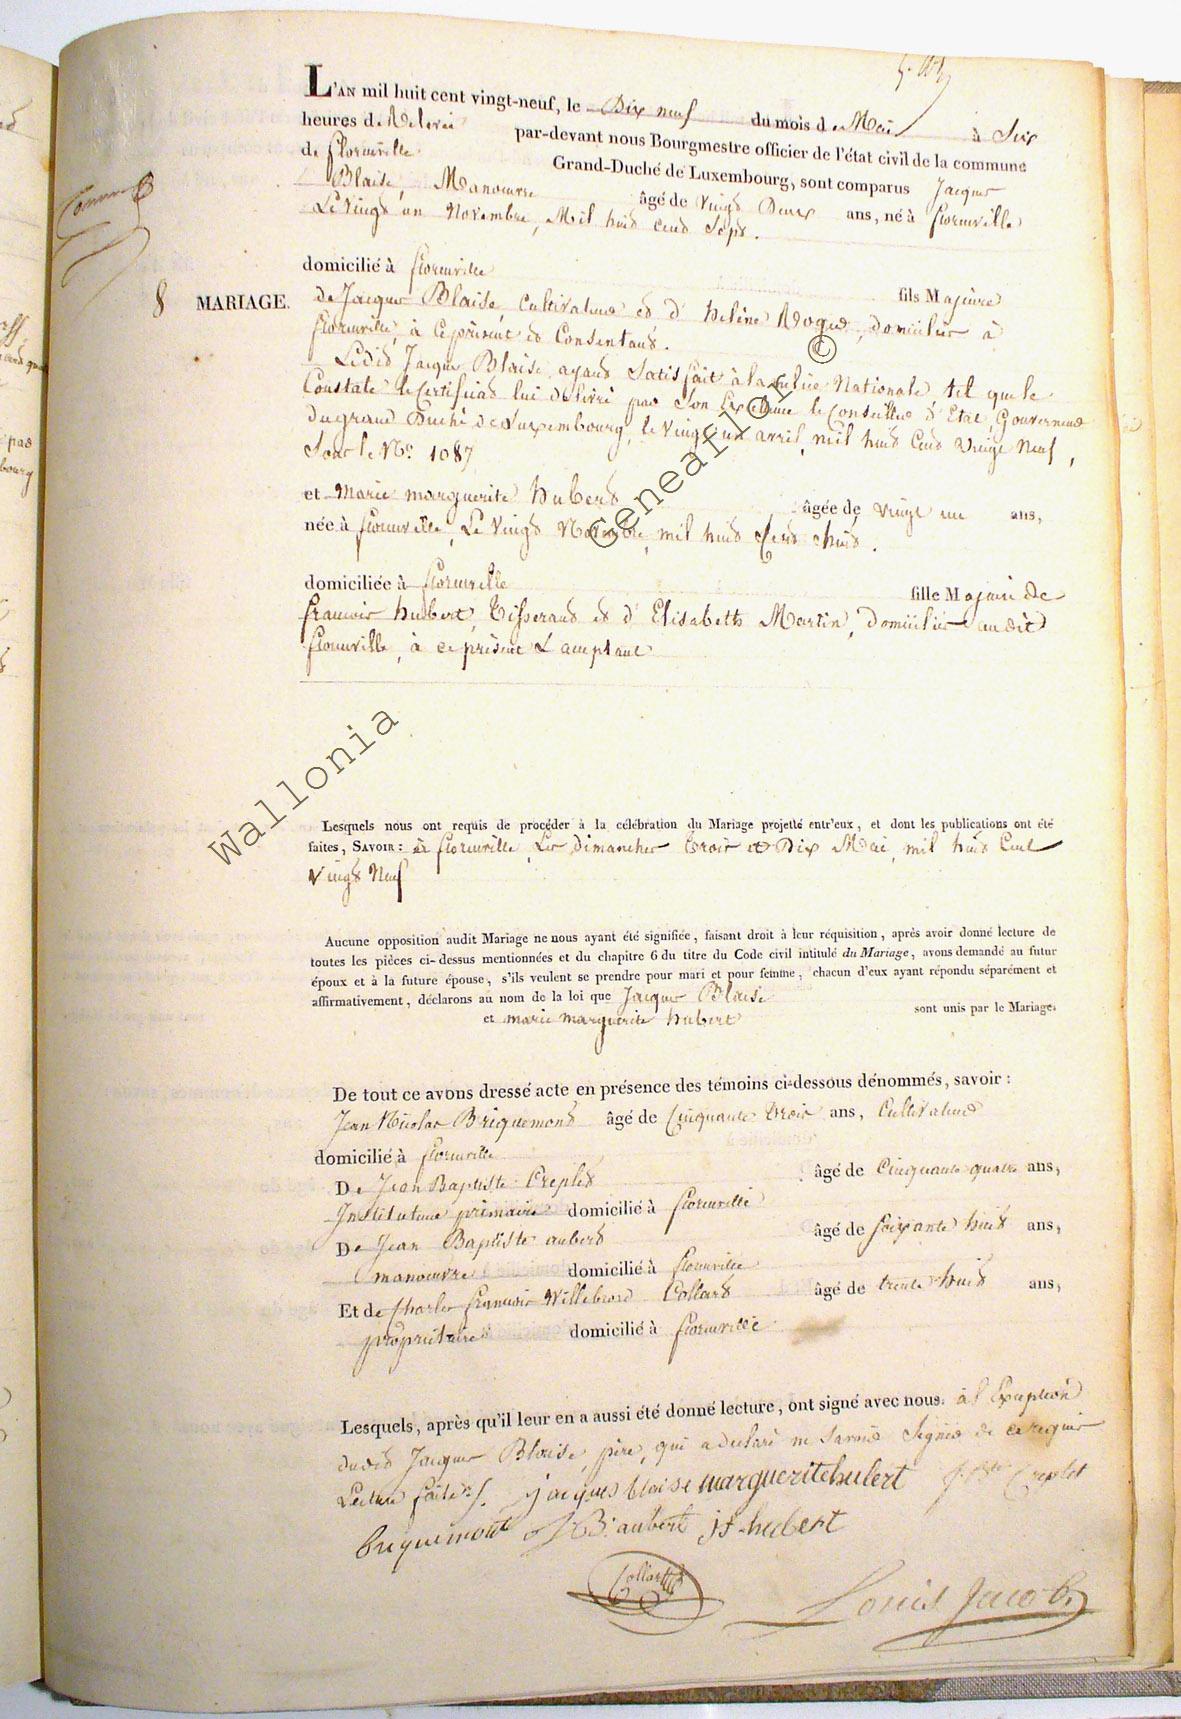 L'AN mil huit cent vingt-neuf, le Dix neuf du mois de Mai à Six
heures de Relevée par-devant nous Bourgmestre officier de l'état civil de la commune
de florenville Grand-Duché de Luxembourg, sont comparus Jacques
Blaise, Manoeuvre âgé de vingt Deux ans, né à florenville
Le vingt un Novembre, Mil huit cent Sept.
domicilié à florenville
8 MARIAGE. fils Majeure
de Jacques Blaise, cultivateur et d' helène Roque, domiciliés à
florenville, à ce présent et Consentans.
Ledit Jacques Blaise ayant Satisfait à la milice Nationale, tel que le
Constate le Certificat lui délivré par Son Excellence le Conseiller d'Etat, Gouverneur
du grand Duché de Luxembourg, le vingt un avril, mil huit Cent Vingt Neuf,
Sous le No: 1087
et Marie marguerite huberd âgée de vingt un ans,
née à florenville, Le vingt Novembre, mil huit Cent huit.
domiciliée à florenville fille Majeure De
francois hubert, Tisserand et d' Elisabeth Martin, domiciliés audit
florenville, à ce présent & acceptant
Lesquels nous ont requis de procéder à la célébration du Mariage projetté entr'eux, et dont les publications ont été
faites, SAVOIR : à florenville, Les dimanches trois et Dix Mai, mil huit Cent
vingt Neuf
Aucune opposition audit Mariage ne nous ayant été signifiée, faisant droit à leur réquisition, après avoir donné lecture de
toutes les pièces ci-dessus mentionnées et du chapitre 6 du titre du Code civil intitulé du Mariage, avons demandé au futur
époux et à la future épouse, s'ils veulent se prendre pour mari et pour femme, chacun d'eux ayant répondu séparément et
affirmativement, déclarons au nom de la loi que Jacques Blaise
et marie marguerite hubert sont unis par le Mariage.
De tout ce avons dressé acte en présence des témoins ci-dessous dénommés, savoir :
Jean Nicolas Briquemont âgé de Cinquante trois ans, Cultivateur
domicilié à florenville
De Jean Baptiste Creplet âgé de Cinquante quatre ans,
Instituteur primaire domicilié à florenville
De Jean Baptiste aubert âgé de soixante huit ans,
manoeuvre domicilié à florenville
Et de Charles françois Willebrord Collard âgé de trente huit ans,
propriétaire domicilié à florenville
Lesquels, après qu'il leur en a aussi été donné lecture, ont signé avec nous. à l'Exception
dudit Jacques Blaise, père, qui a déclaré ne Savoir Signer de ce requis
Lecture faite
jacques blaise marguerite hubert J. Bte Creplet
briquemont J B. aubert j f hubert
Collard
Louis Jacob
Wallonia Geneaflor ©